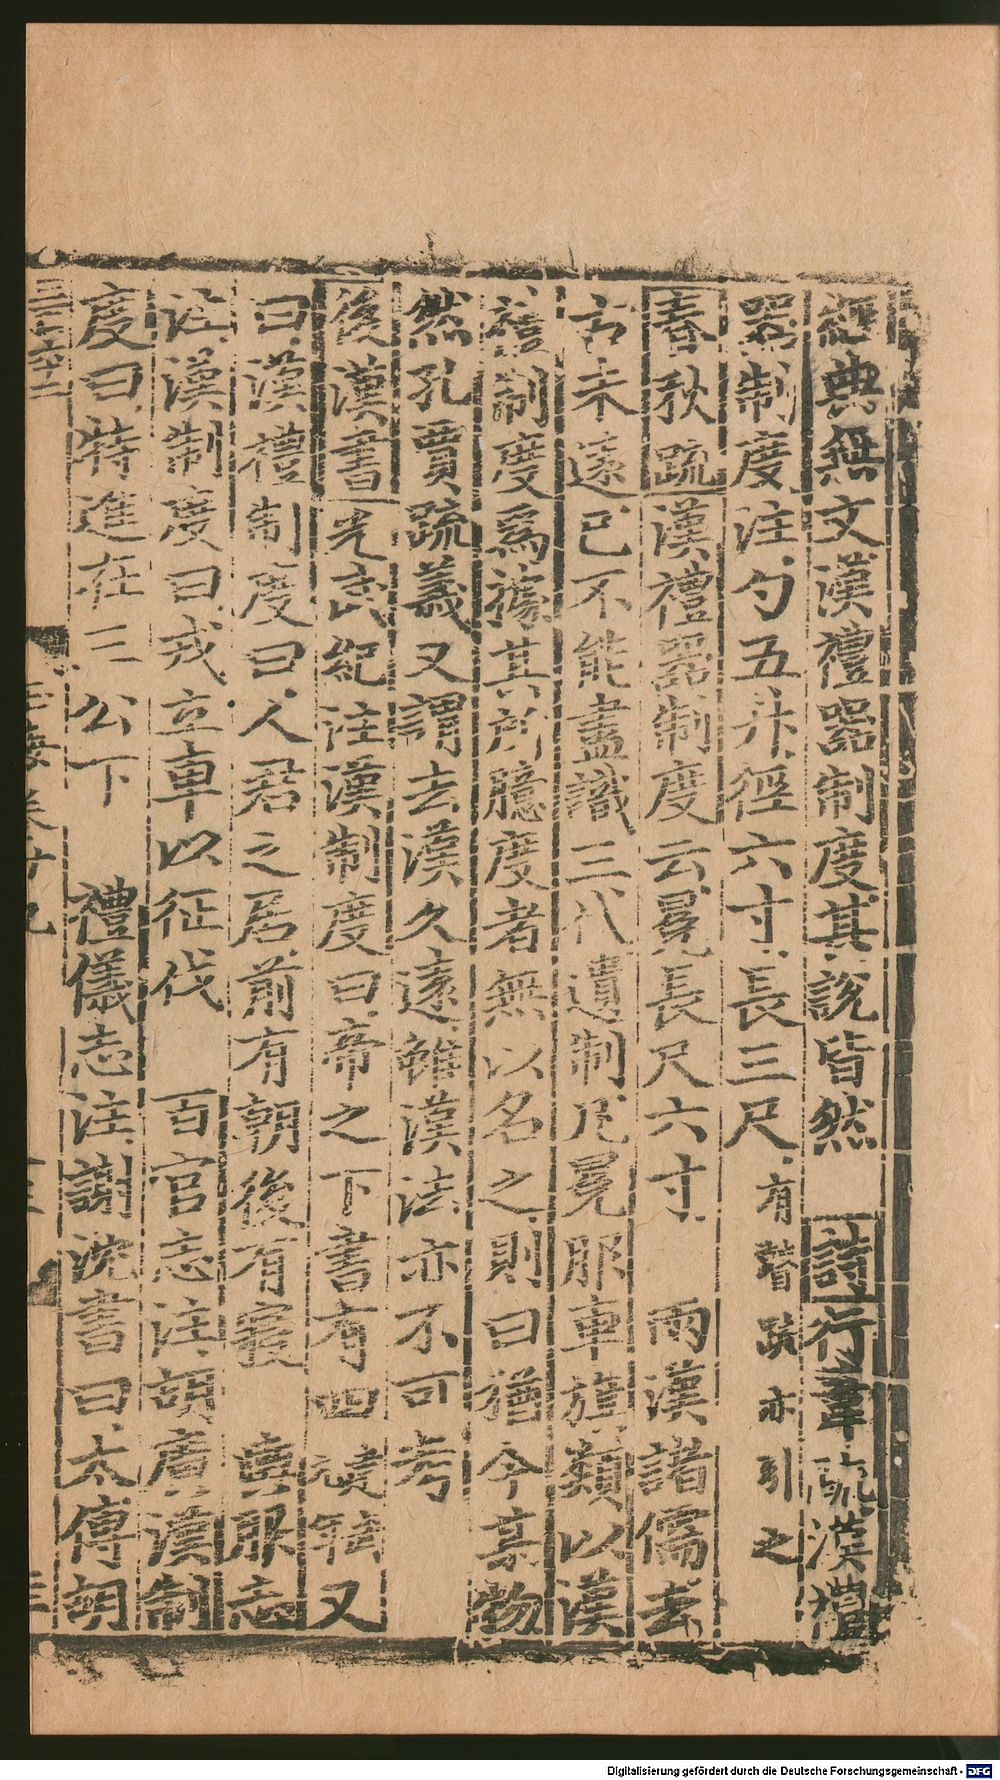 經典無文漢禮器制度其說皆然 詩行葦疏漢禮
器制度注勺五升徑六寸長三尺有瞽疏亦引之
春秋疏漢禮器制度云冕長尺六寸 兩漢諸儒去
古未遠已不能盡識三代遺制凡冕服車旗類以漢
禮制度爲據其所臆度者無以名之則曰猶今某物
然孔賈疏義又謂去漢久遠雖漢法亦不可考
後漢書光武紀注漢制度曰帝之下書有四 續輯又
曰漢禮制度曰人君之居前有朝後有寢 輿服志
注漢制度曰戎立車以征伐 百官志注胡廣漢制
度曰特進在三公下 禮儀志注謝沈書曰太傅胡
三百十二
玉海卷廿九
Digitalisierung gefördert durch die Deutsche Forschungsgemeinschaft - DFG